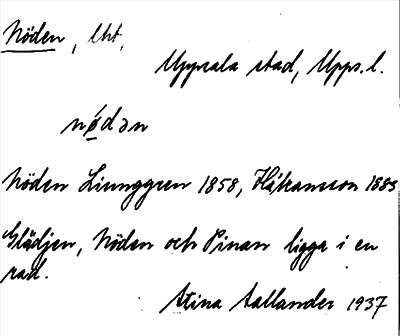 Nöden, lht,
Uppsala stad, Upps. l.
nǿdən
Nöden Ljunggren 1858, Håkansson 1883
Glädjen, Nöden och Pinan ligga i en
rad.
Stina Sallander 1937